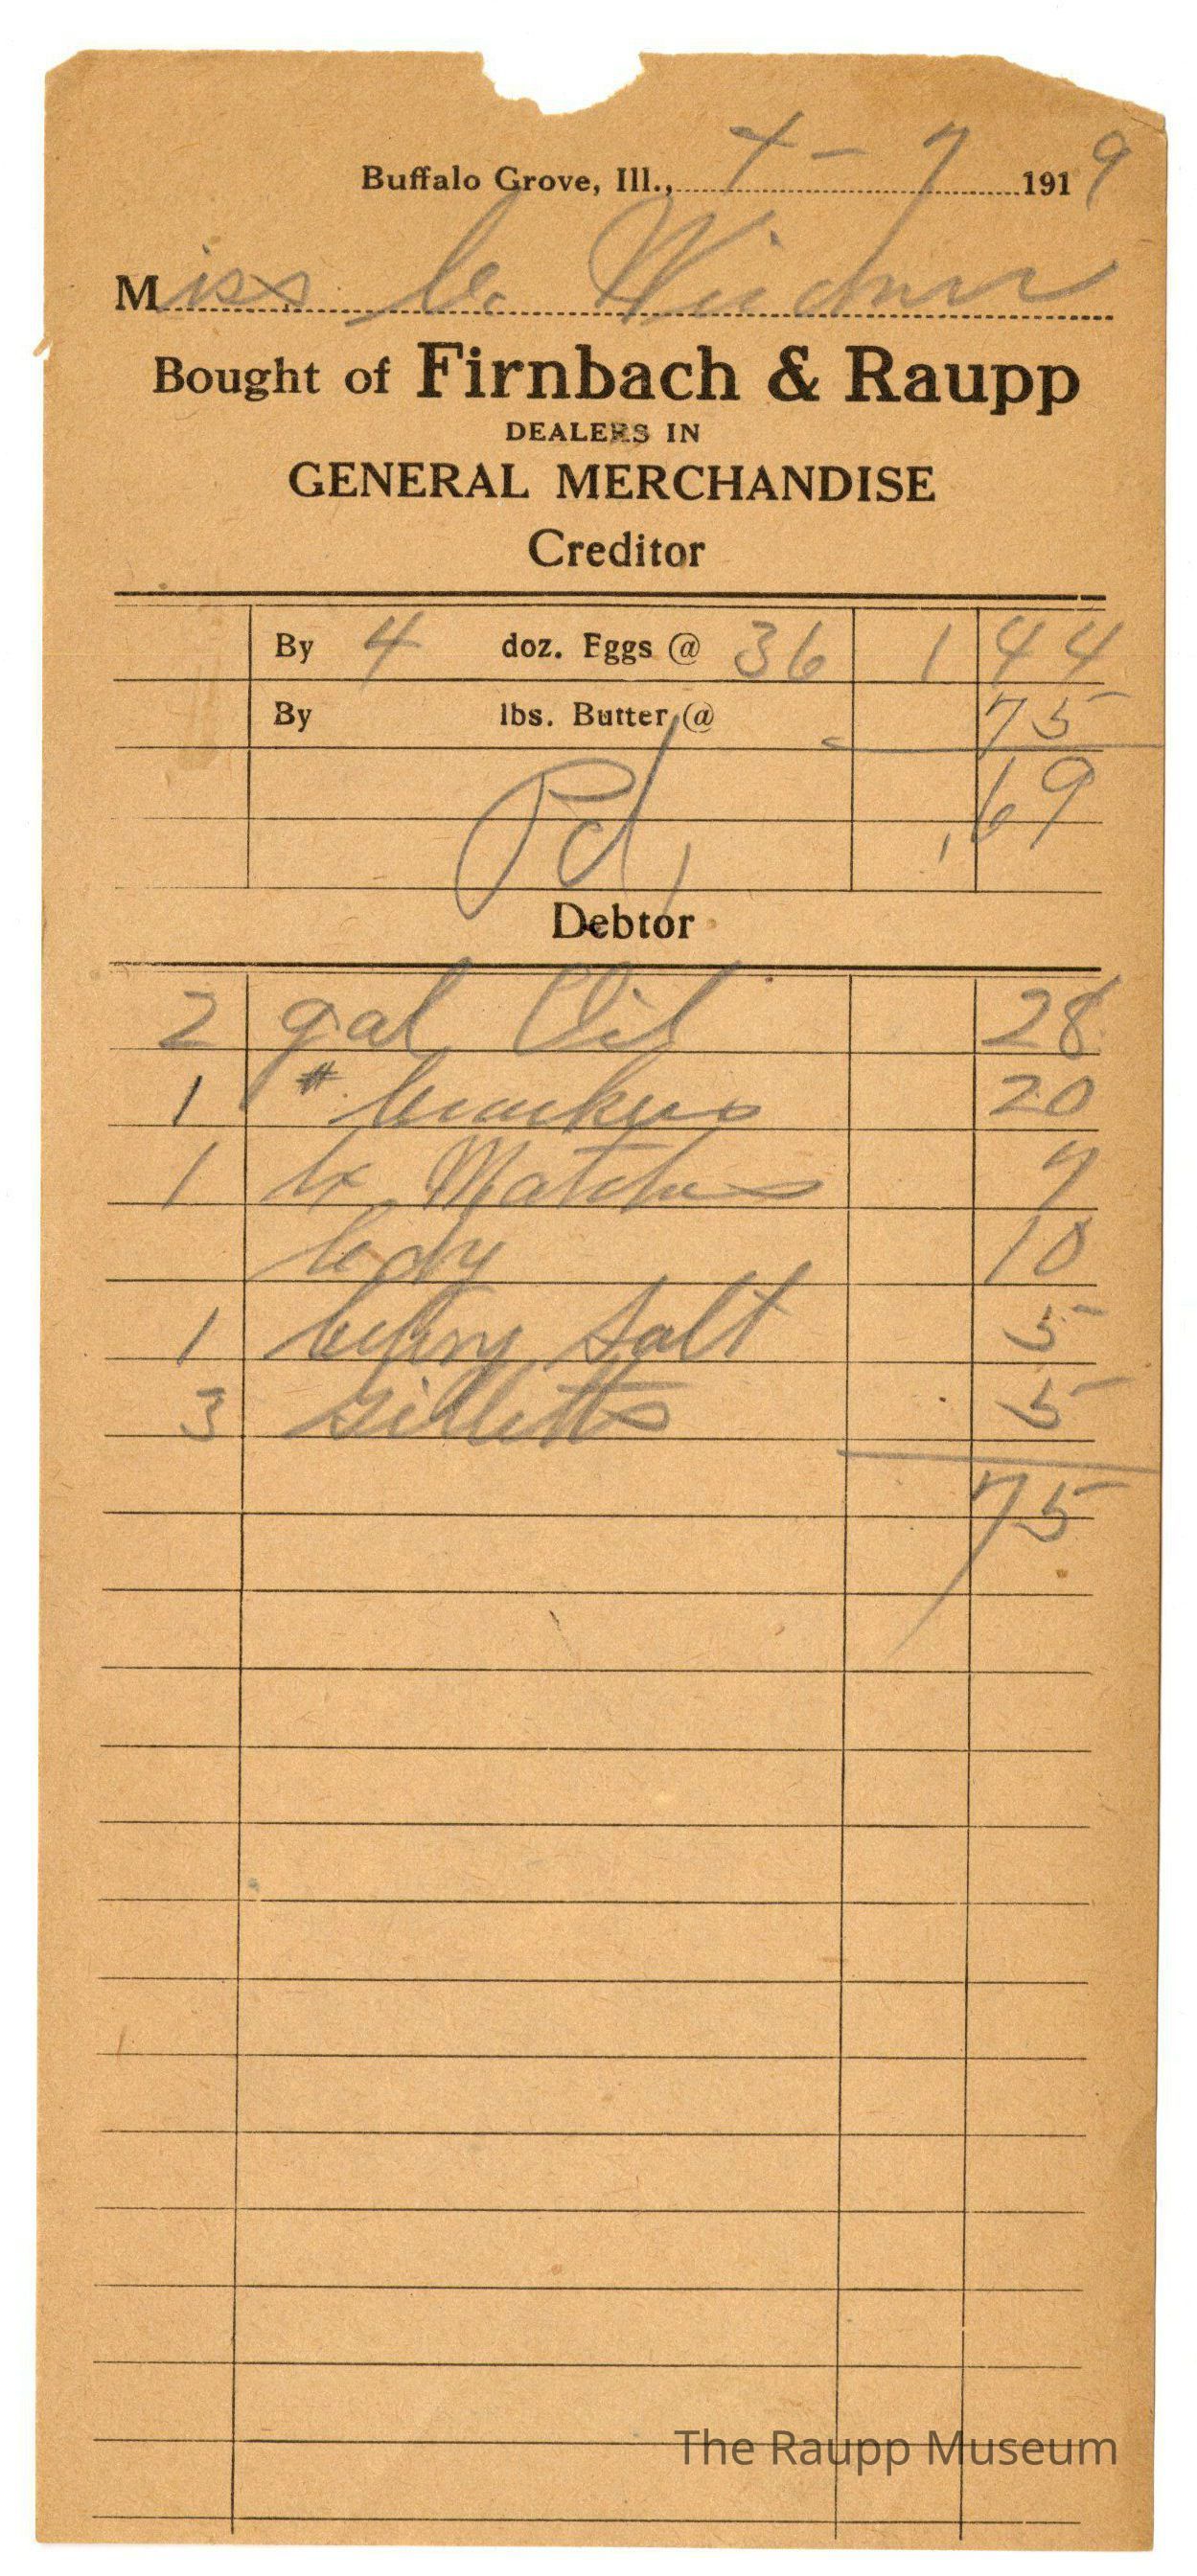 Buffalo Grove, Ill., 4 - 7 1919
Miss C. Weidner
Bought of Firnbach & Raupp
DEALERS IN
GENERAL MERCHANDISE
Creditor
By 4 doz. Eggs @ 36 1 44
By lbs. Butter @ 75
,69
Pd,
Debtor
2 gal Oil 28
1 # Crackers 20
1 bx Matches 7
Cdy 10
1 Salt 5
3 Gilletts 5
75
The Raupp Museum